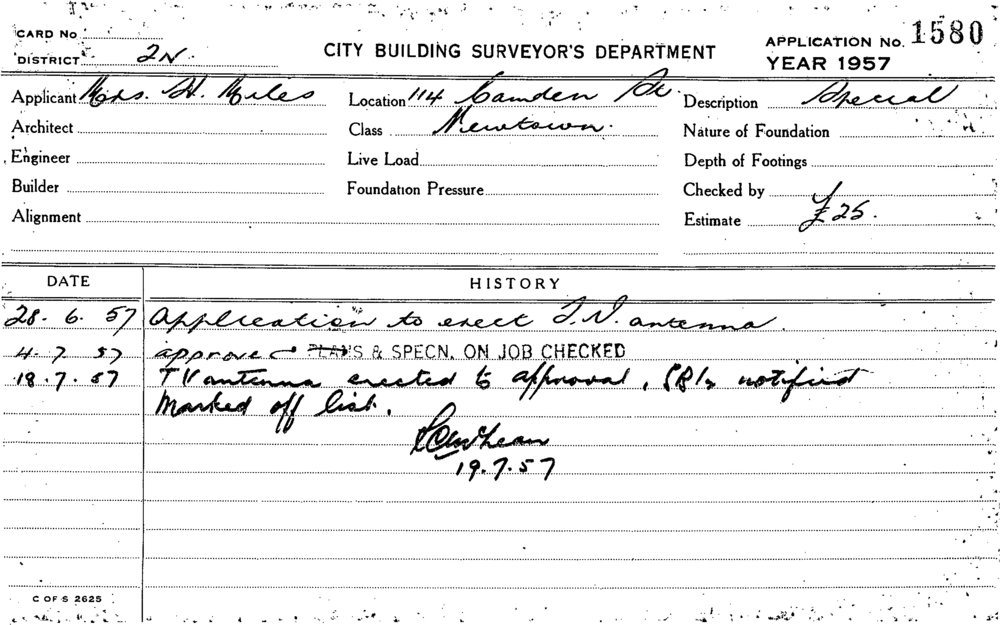 CARD No
DISTRICT 2N.
CITY BUILDING SURVEYOR'S DEPARTMENT
APPLICATION No. 1580
YEAR 1957
Applicant Mrs. H. Miles
Location 114 Camden St.
Description Special
Architect
Class Newtown.
Nature of Foundation
Engineer
Live Load
Depth of Footings
Builder
Foundation Pressure
Checked by
Alignment
Estimate £25.
DATE
HISTORY
28. 6. 57 Application to erect T.V. antenna.
4. 7. 57 approved PLANS & SPECN. ON JOB CHECKED
18. 7. 57 TV antenna erected to approval, notified
Marked off list.
19.7.57
C OF S 2625